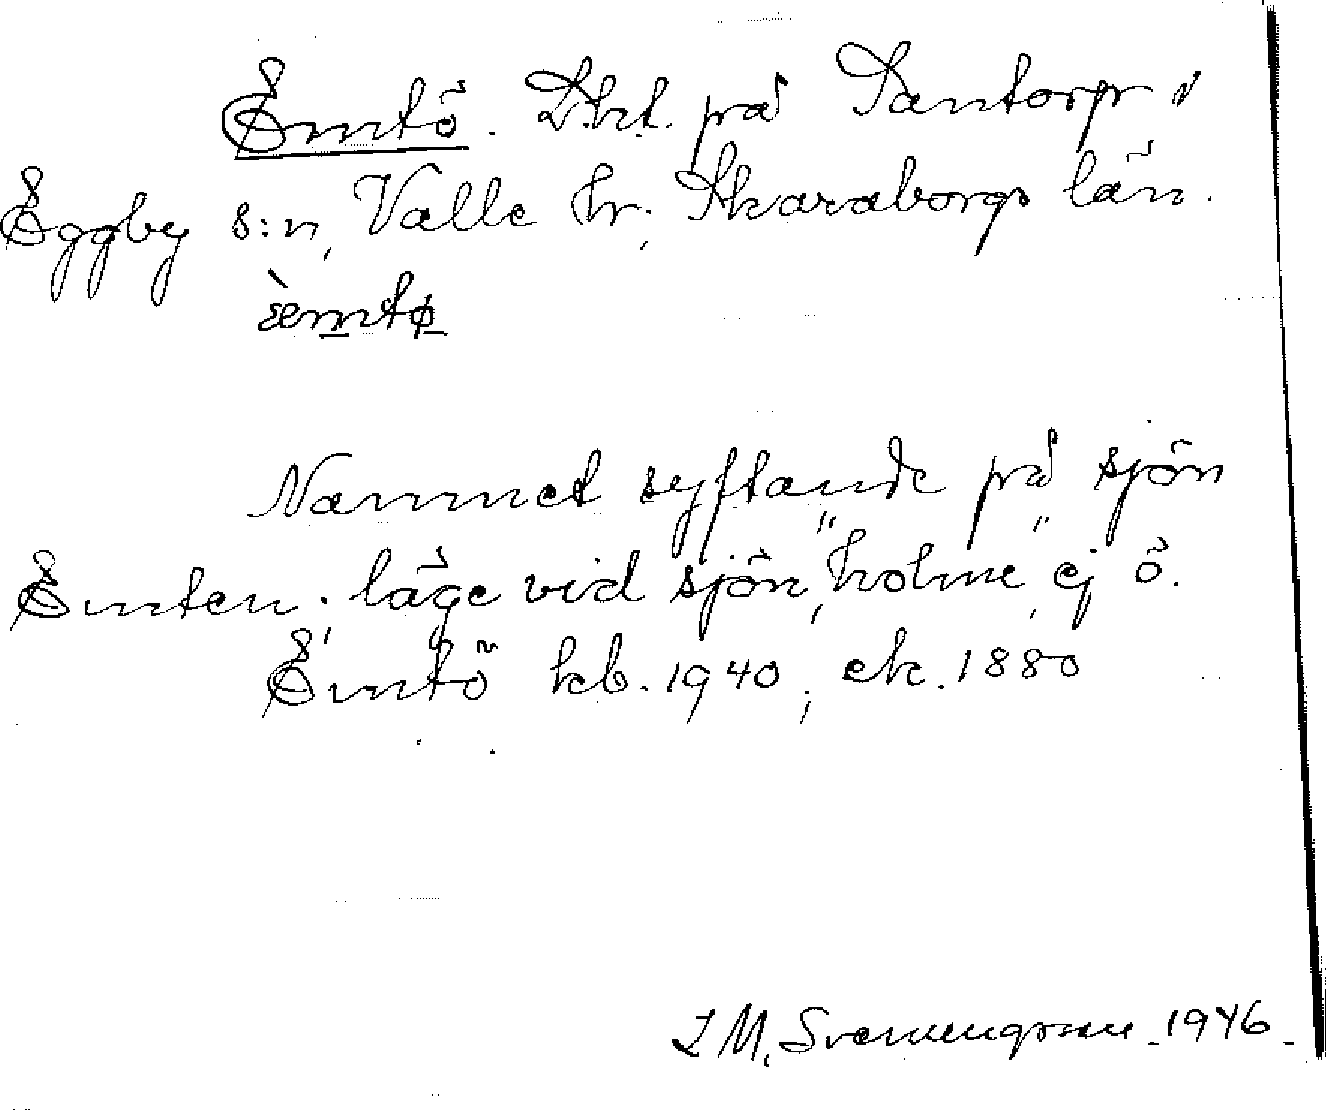 Emtö. Lht. på Santorp i
Eggby s:n, Valle hr, Skaraborgs län.
æ̀mtø
Namnet syftande på sjön
Emten; läge vid sjön, "holme", ej ö.
Emtö kb. 1940; ek. 1880
I M. Svennungsson 1946